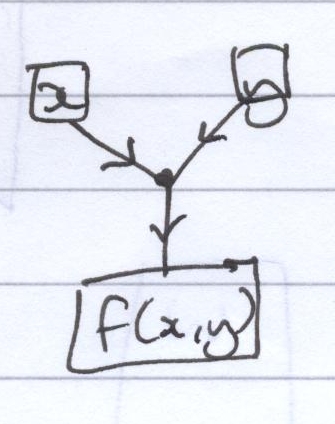 x y
f(x,y)